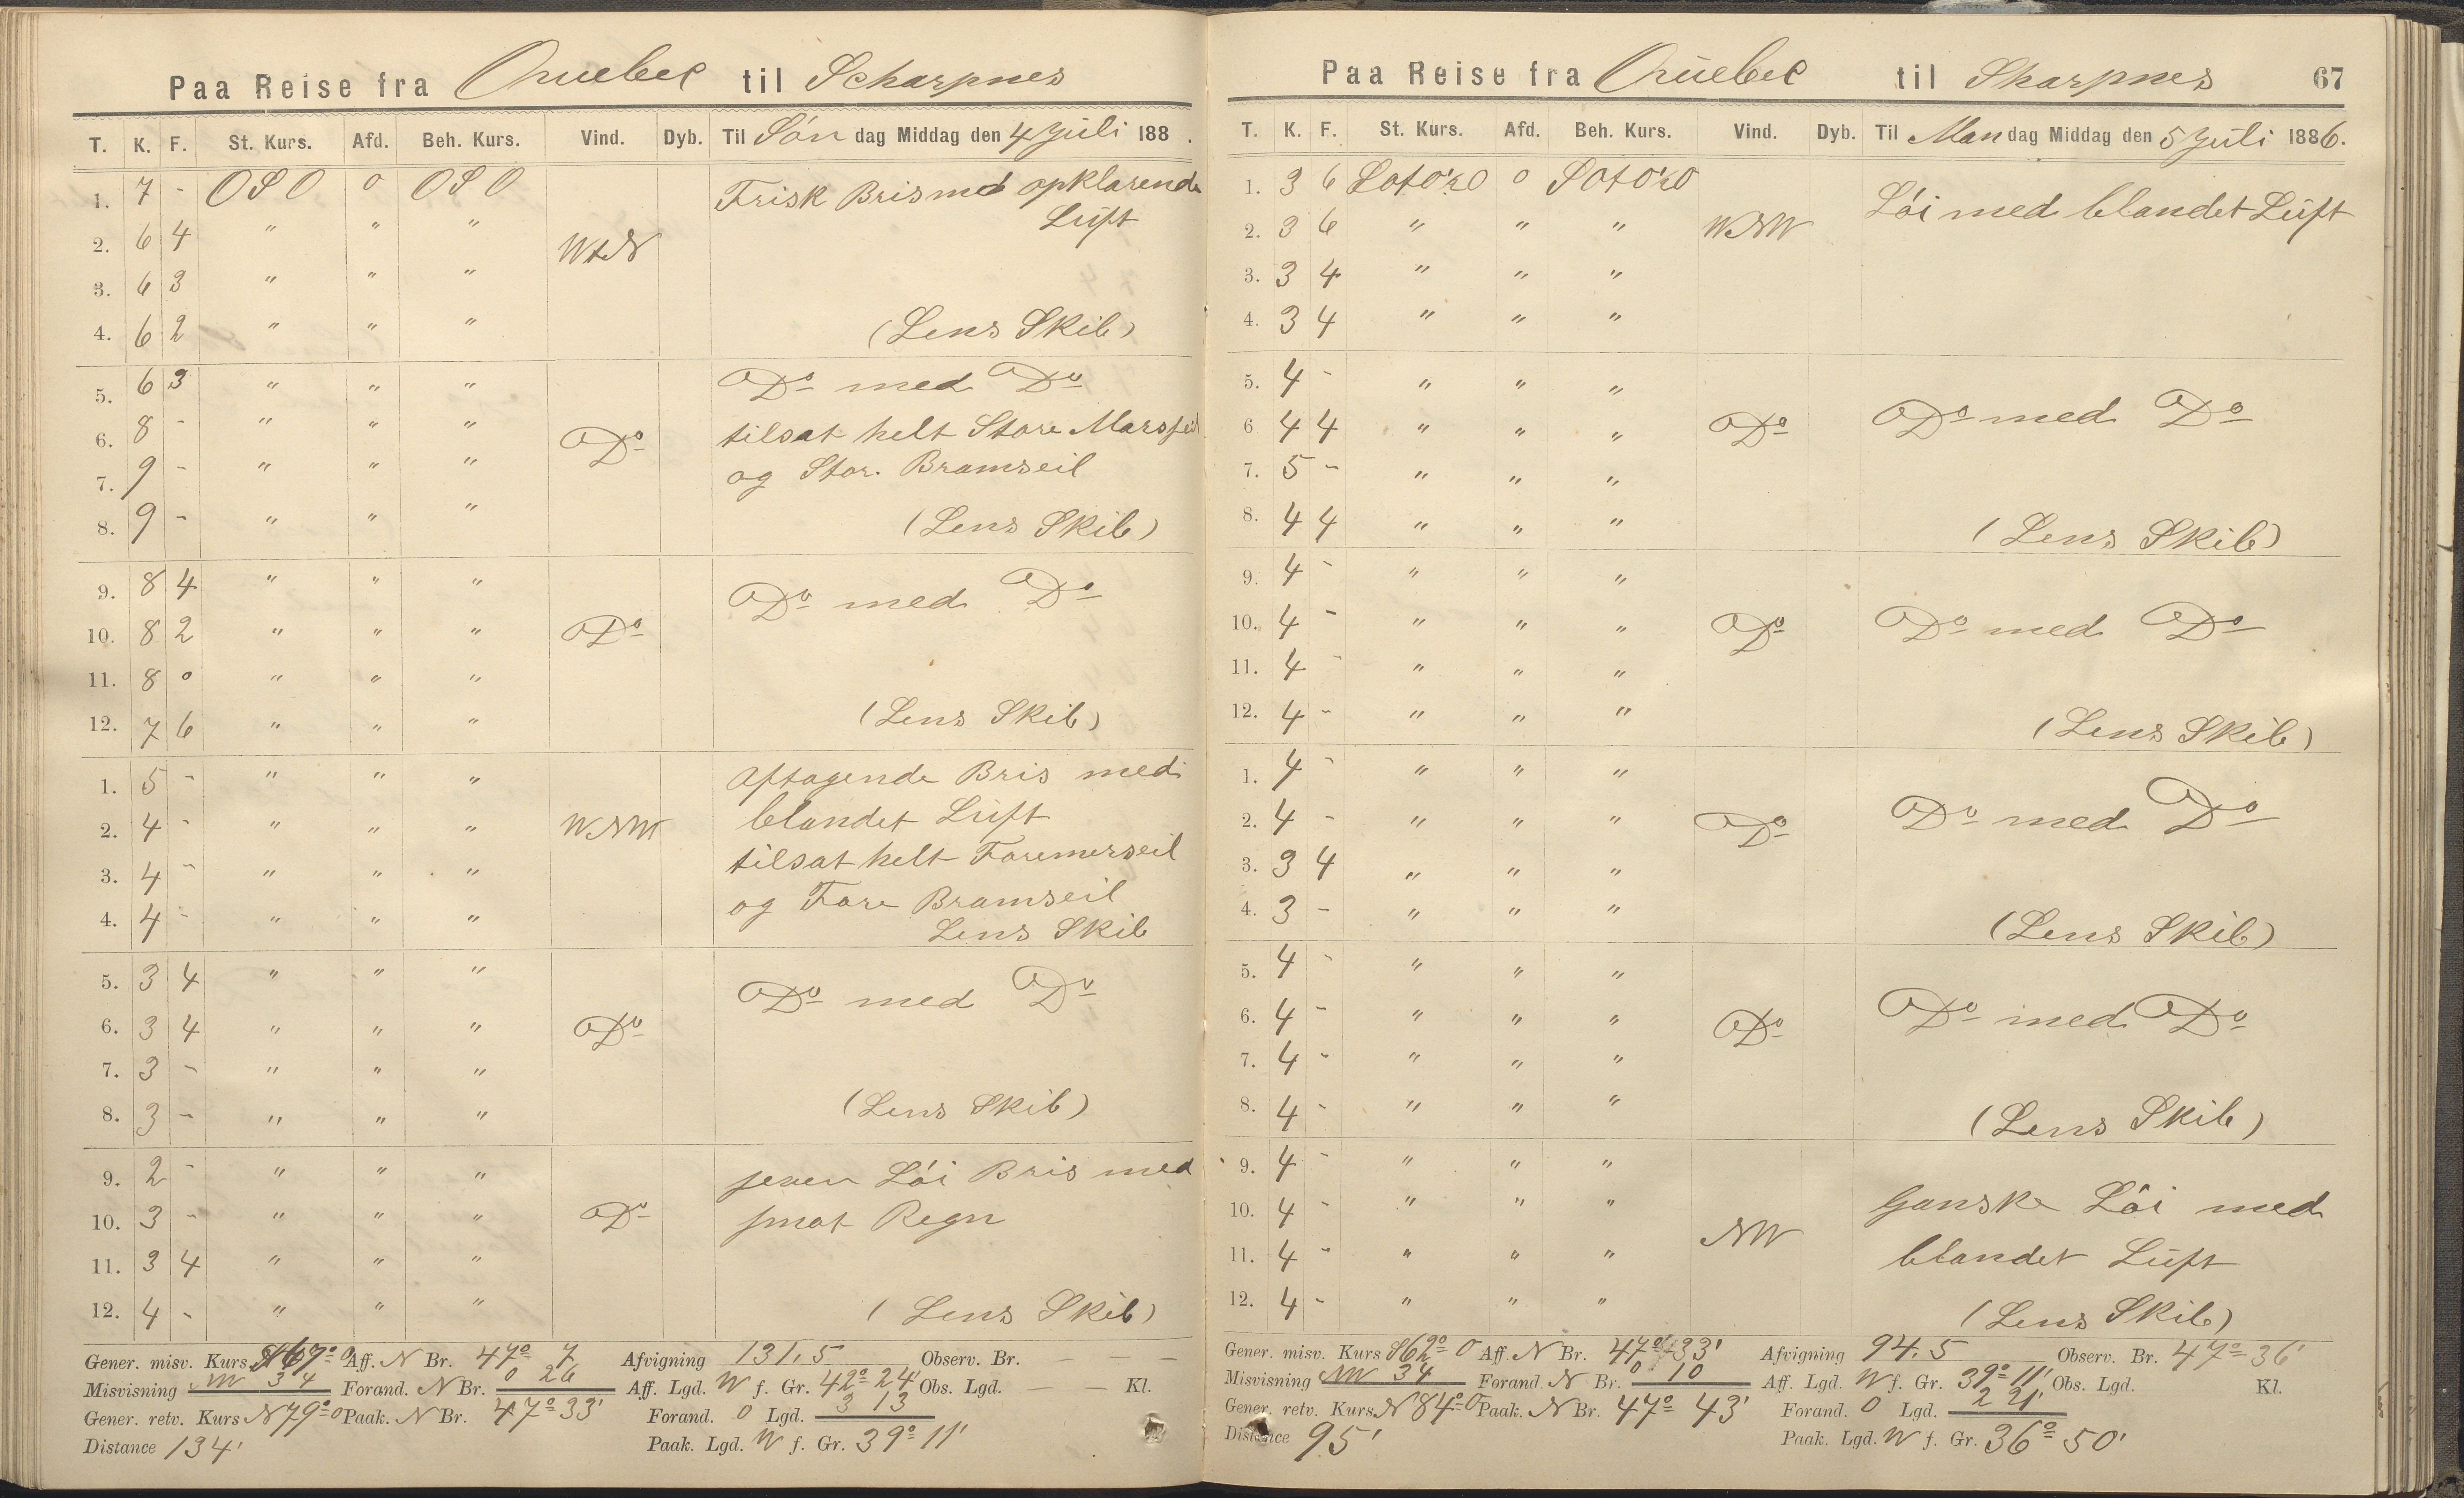 Paa Reise fra Quebec til Scharpnes
T. K. F. St. Kurs. Afd. Beh. Kurs. Vind. Dyb. Til Søn dag Middag den 4 Juli 188 .
1. 7 - OSO o OSO Frisk Bris med opklarende
Luft
2. 6 4 " " " WtN
3. 6 3 " " "
4. 6 2 " " " (Lens Skib)
5. 6 3 " " " Do med Do
6. 8 - " " " Do tilsat helt Store Mersseil
7. 9 - " " " og Stor. Bramseil
8. 9 - " " " (Lens Skib)
9. 8 4 " " " Do med Do
10. 8 2 " " " Do
11. 8 o " " "
12. 7 6 " " " (Lens Skib)
1. 5 - " " " Aftagende Bris med
2. 4 - " " " WNW blandet Luft
3. 4 - " " " tilsat helt Foremerseil
og Fore Bramseil
4. 4 - " " " Lens Skib
5. 3 4 " " " Do med Do
6. 3 4 " " " Do
7. 3 - " " "
8. 3 - " " " (Lens Skib)
9. 2 - " " " jeven Løi Bris med
10. 3 - " " " Do smat Regn
11. 3 4 " " "
12. 4 - " " " (Lens Skib)
Gener. misv. Kurs S 67° O Aff. N Br. 47° 7 Afvigning 131,5 Observ. Br. — — —
Misvisning NW 34 Forand. N Br. 0 26 Aff. Lgd. W f. Gr. 42° 24' Obs. Lgd. — — Kl.
Gener. retv. Kurs N 79° O Paak. N Br. 47° 33' Forand. O Lgd. 3 13
Distance 134' Paak. Lgd. W f. Gr. 39° 11'
Paa Reise fra Quebec til Skarpnes 67
T. K. F. St. Kurs. Afd. Beh. Kurs. Vind. Dyb. Til Man dag Middag den 5 Juli 1886.
1. 3 6 SOtO½O o SOtO½O Løi med blandet Luft
2. 3 6 " " " WNW
3. 3 4 " " "
4. 3 4 " " "
5. 4 - " " "
6 4 4 " " " Do Do med Do
7. 5 - " " "
8. 4 4 " " " (Lens Skib)
9. 4 - " " "
10. 4 - " " " Do Do med Do
11. 4 - " " "
12. 4 - " " " (Lens Skib)
1. 4 - " " "
2. 4 - " " " Do Do med Do
3. 3 4 " " "
4. 3 - " " " (Lens Skib)
5. 4 - " " "
6. 4 - " " " Do Do med Do
7. 4 - " " "
8. 4 - " " " (Lens Skib)
9. 4 - " " "
10. 4 - " " " NW Ganske Løi med
11. 4 - " " " blandet Luft
12. 4 - " " " (Lens Skib)
Gener. misv. Kurs S 62° O Aff. N Br. 47° 33' Afvigning 94.5 Observ. Br. 47° 36'
Misvisning NW 34 Forand. N Br. 0 10 Aff. Lgd. W f. Gr. 39° 11' Obs. Lgd. Kl.
Gener. retv. Kurs N 84° O Paak. N Br. 47° 43' Forand. O Lgd. 2 21'
Distance 95' Paak. Lgd. W f. Gr. 36° 50'